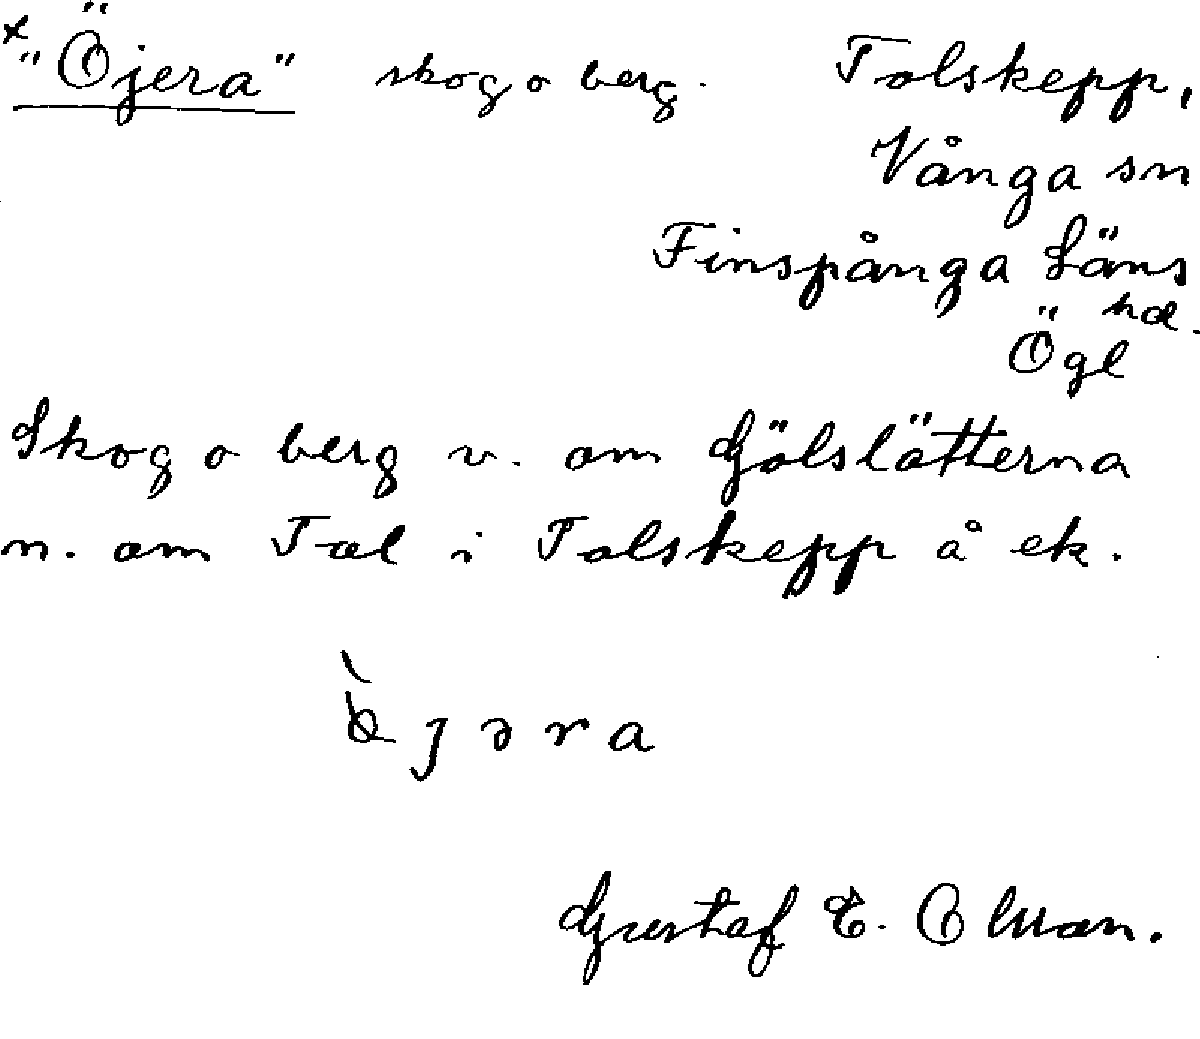 x "Öjera" skog o berg. Tolskepp,
Vånga sn
Finspånga Läns
hd.
Ögl
Skog o berg v. om Gölslätterna
n. om Tal i Tolskepp å ek.
jəra
Gustaf E.